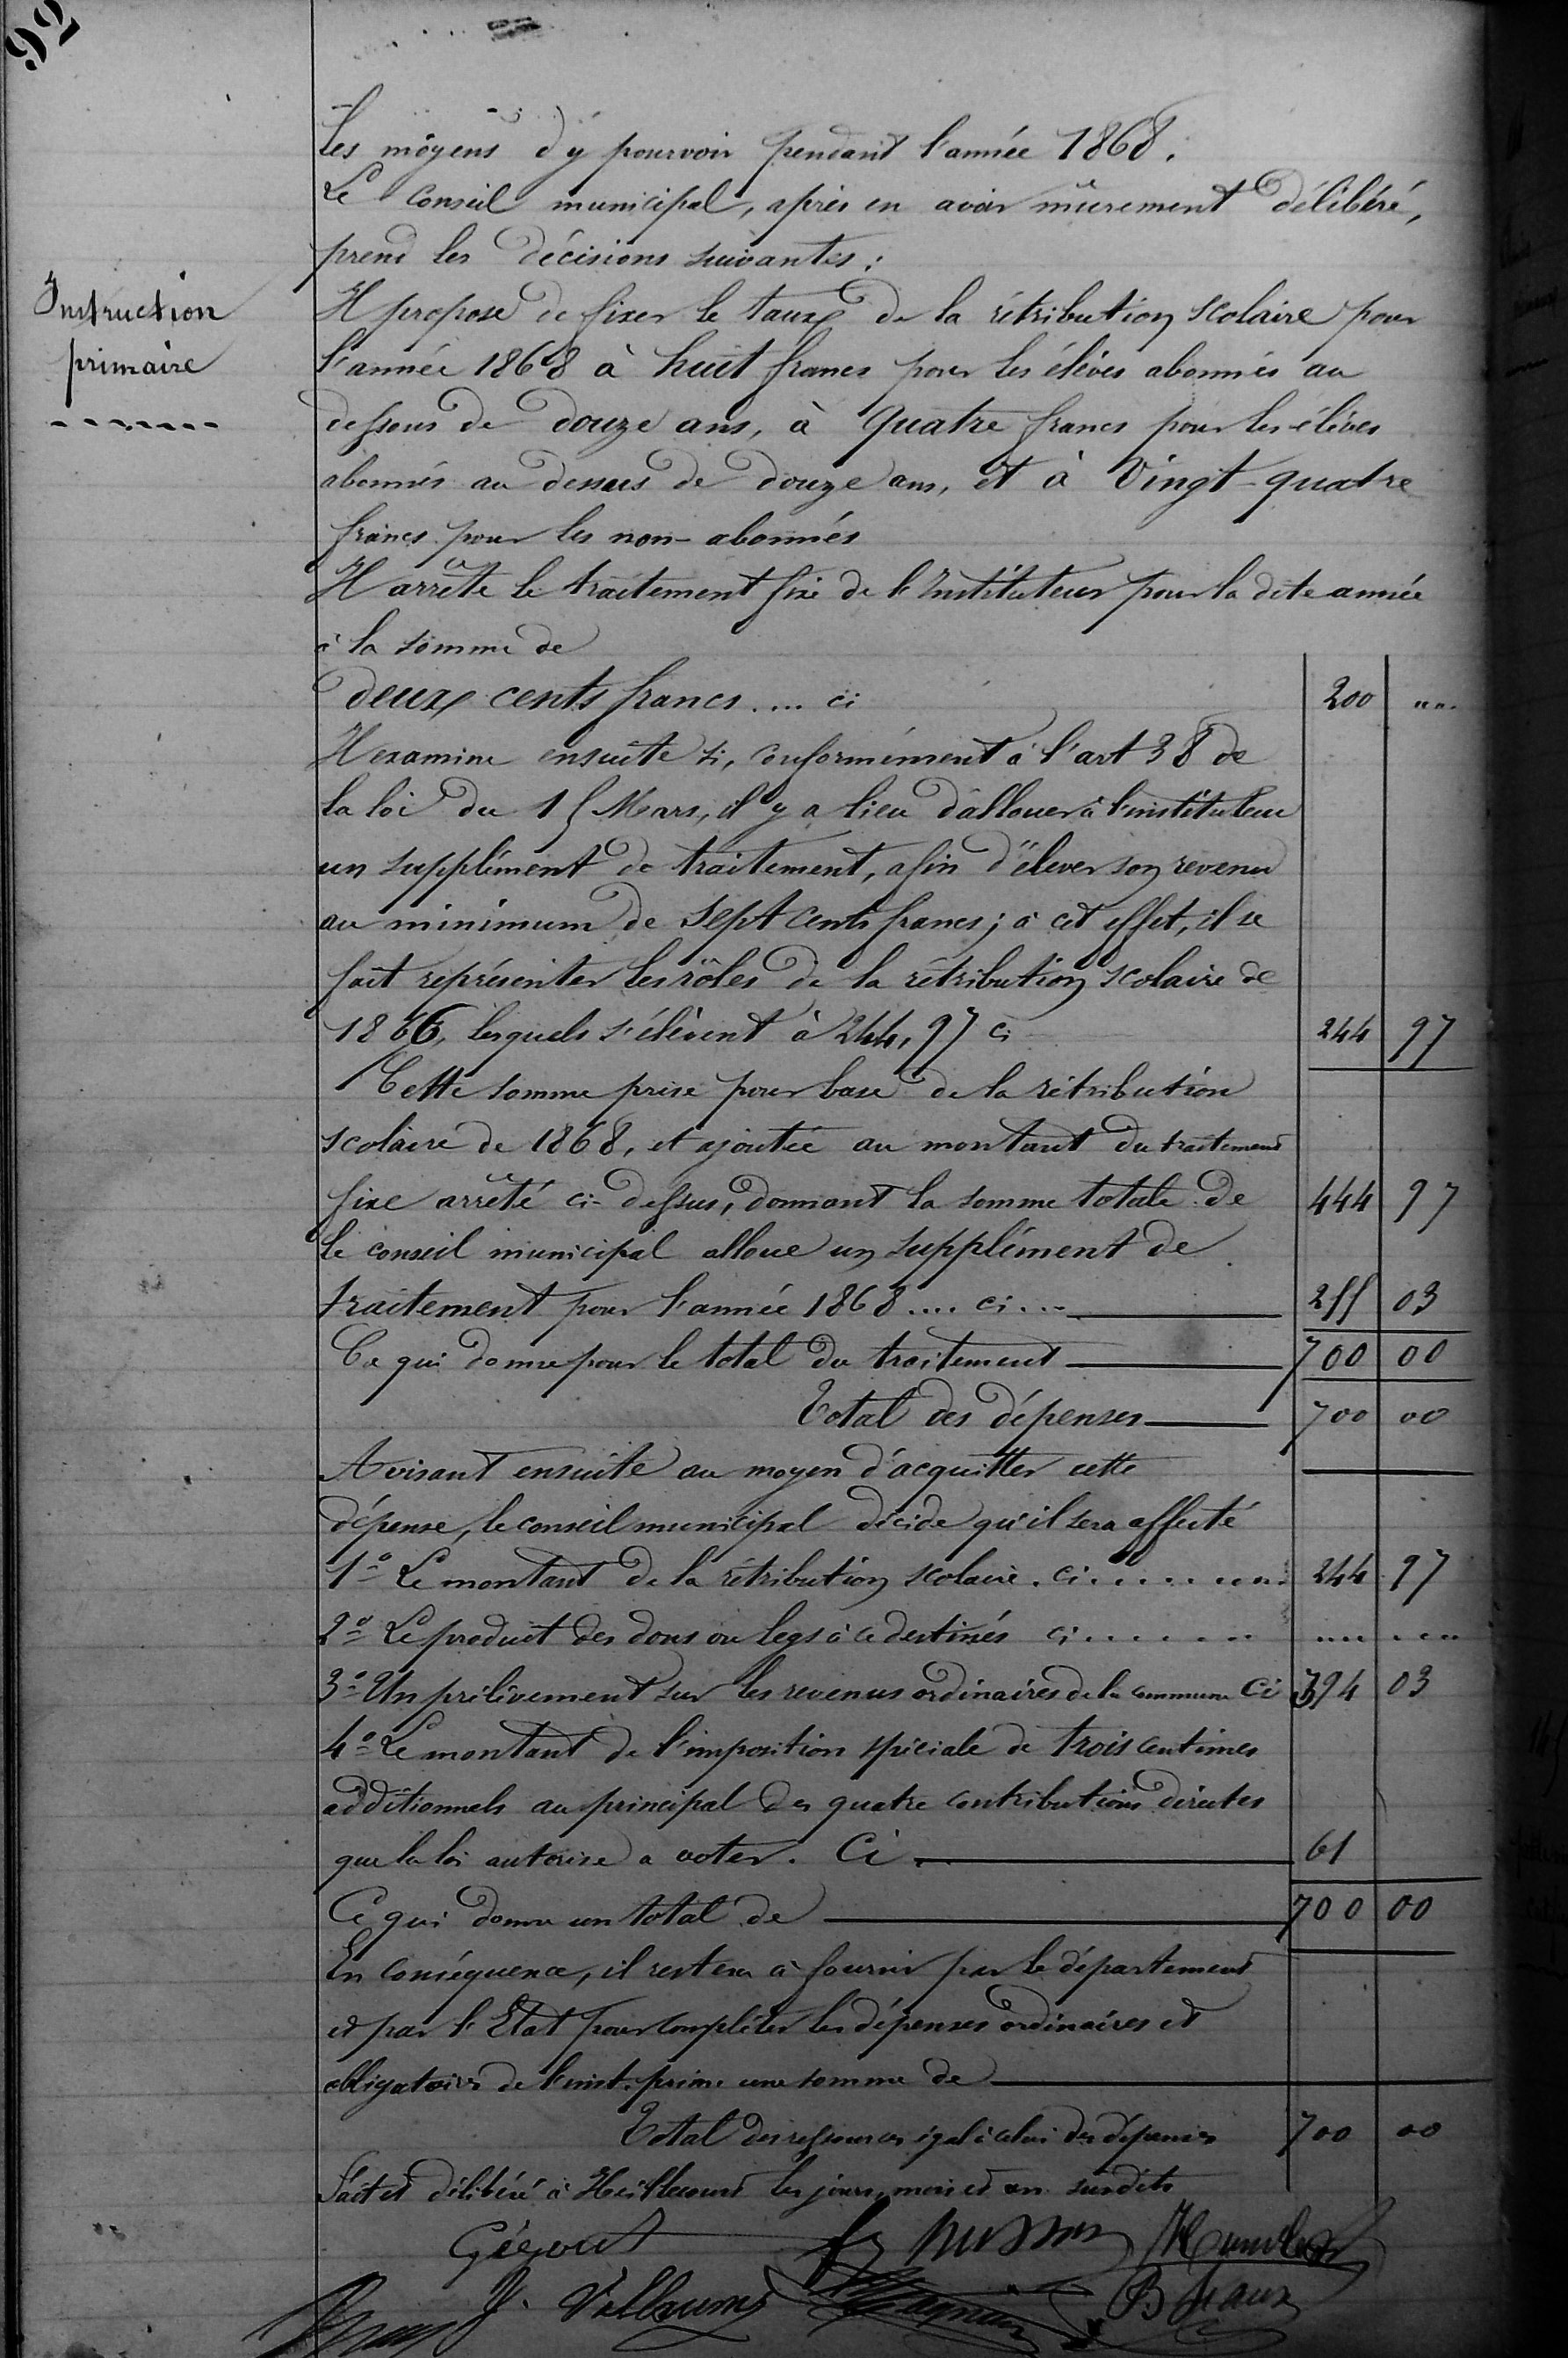 92
Les moyens d'y pourvoir pendant l'année 1868.
Le Conseil municipal, après en avoir mûrement délibéré,
prend les décisions suivantes :
Instruction
primaire
Il propose de fixer le taux de la rétribution scolaire pour
l'année 1868 à huit francs pour les élèves abonnés au
dessous de douze ans, à quatre francs pour les élèves
abonnés au dessus de douze ans, et à Vingt-quatre
francs pour les non-abonnés
Il arrête le traitement fixe de l'Instituteur pour la dite année
à la somme de
deux cents francs .... ci 200 "..
Il examine ensuite si, conformément à l'art 38 de
la loi du 15 Mars, il y a lieu d'allouer à l'instituteur
un supplément de traitement, afin d'élever son revenu
au minimum de Sept Cents francs ; à cet effet, il se
fait représenter les rôles de la rétribution scolaire de
1866, lesquels s'élèvent à 244,97 ci 244 97
Cette somme prise pour base de la rétribution
scolaire de 1868, et ajoutée au montant du traitement
fixe arrêté ci-dessus, donnant la somme totale de 444 97
le conseil municipal alloue un supplément de
traitement pour l'année 1868 .... ci ... 255 03
Ce qui donne pour le total du traitement 700 00
Total des dépenses 700 00
Avisant ensuite au moyen d'acquitter cette
dépense, le conseil municipal décide qu'il sera affecté
1° Le montant de la rétribution scolaire . ci ........ 244 97
2° Le produit des dons ou legs à ce destinés ci ....... .... ....
3° Un prélèvement sur les revenus ordinaires de la commune Ci 394 03
4° Le montant de l'imposition spéciale de trois centimes
additionnels au principal des quatre contributions directes
que la loi autorise a voter. Ci 61
Ce qui donne un total de 700 00
En conséquence, il restera à fournir par le département
et par l'Etat pour compléter les dépenses ordinaires et
obligatoires de l'inst. prim. une somme de
Total des ressources égal à celui des dépenses 700 00
Fait et délibéré à Heillecourt les jours, mois et an susdits
Gégout
J. Villaume